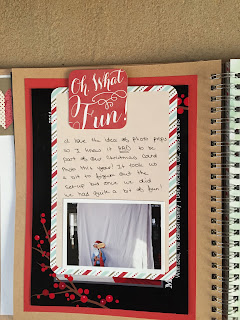 Oh, What
Fun!
I love the idea of photo props
so I knew it HAD to be
part of our Christmas Card
Photo this year! It took us
a bit to figure out the
set-up but once we did
we had quite a bit of fun!